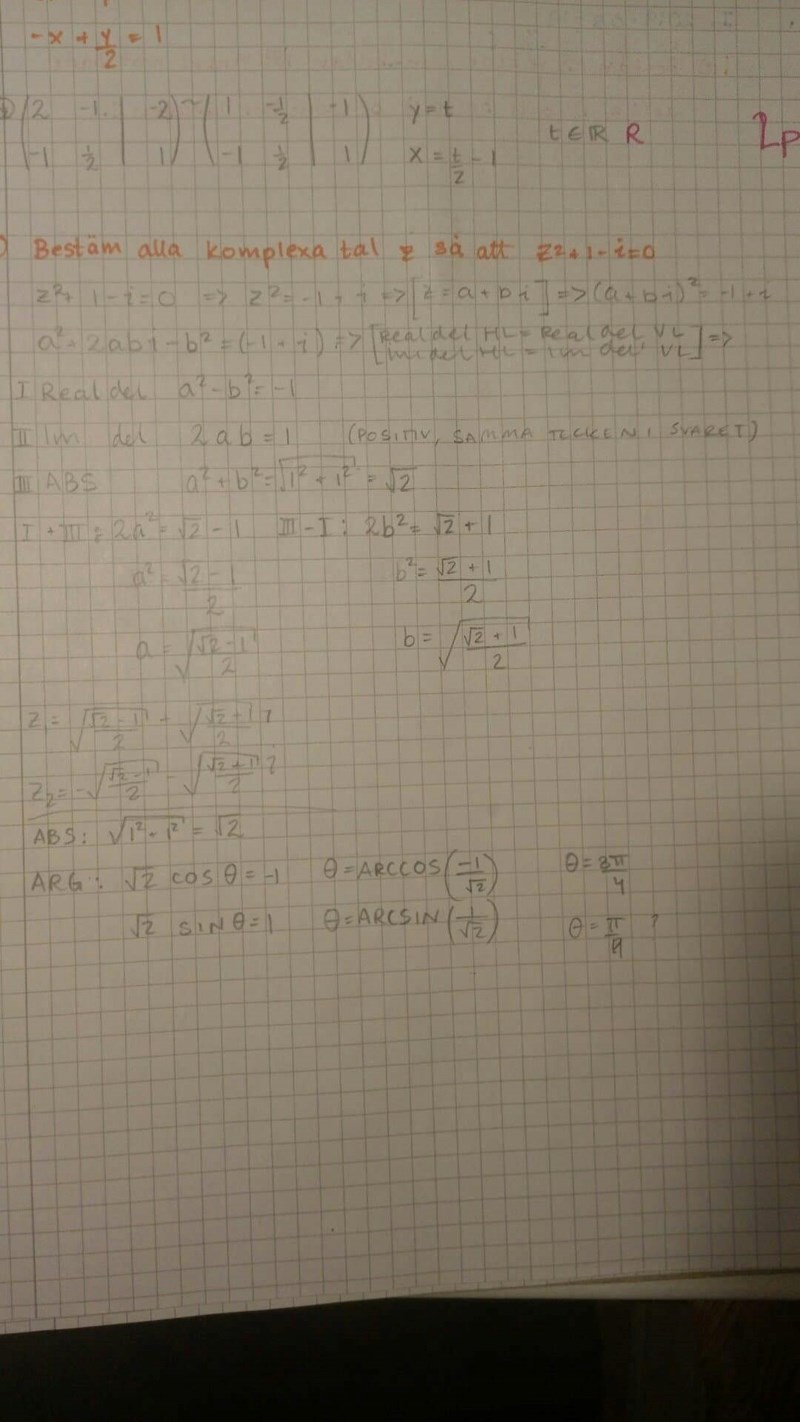 -x + y/2 = 1
(2 -1 | -2) ~ (1 -1/2 | -1) y=t
(-1 1/2 | 1) (-1 1/2 | 1) x = t/2 - 1 t∈ℝ R 2p
) Bestäm alla komplexa tal z så att z²+1-i=0
z²+1-i=0 => z²=-1+i => [z=a+bi] => (a+bi)²=-1+i
a²+2abi-b²=(-1+i) => [Realdel HL = Realdel VL
Imdel HL = Im del VL] =>
I Realdel a²-b²=-1
II Im del 2ab=1 (POSITIV, SAMMA TECKEN I SVARET)
III ABS a²+b²=√(1²+1²) = √2
I+III: 2a²=√2-1 III-I: 2b²=√2+1
a²=(√2-1)/2 b²=(√2+1)/2
a=√((√2-1)/2) b=√((√2+1)/2)
z₁=√((√2-1)/2) + √((√2+1)/2) i
z₂=-√((√2-1)/2) - √((√2+1)/2) i
ABS: √(1²-i²) = √2
ARG: √2 cos θ=-1 θ=ARCCOS(-1/√2) θ=3π/4
√2 SIN θ=1 θ=ARCSIN(1/√2) θ=π/4 ?